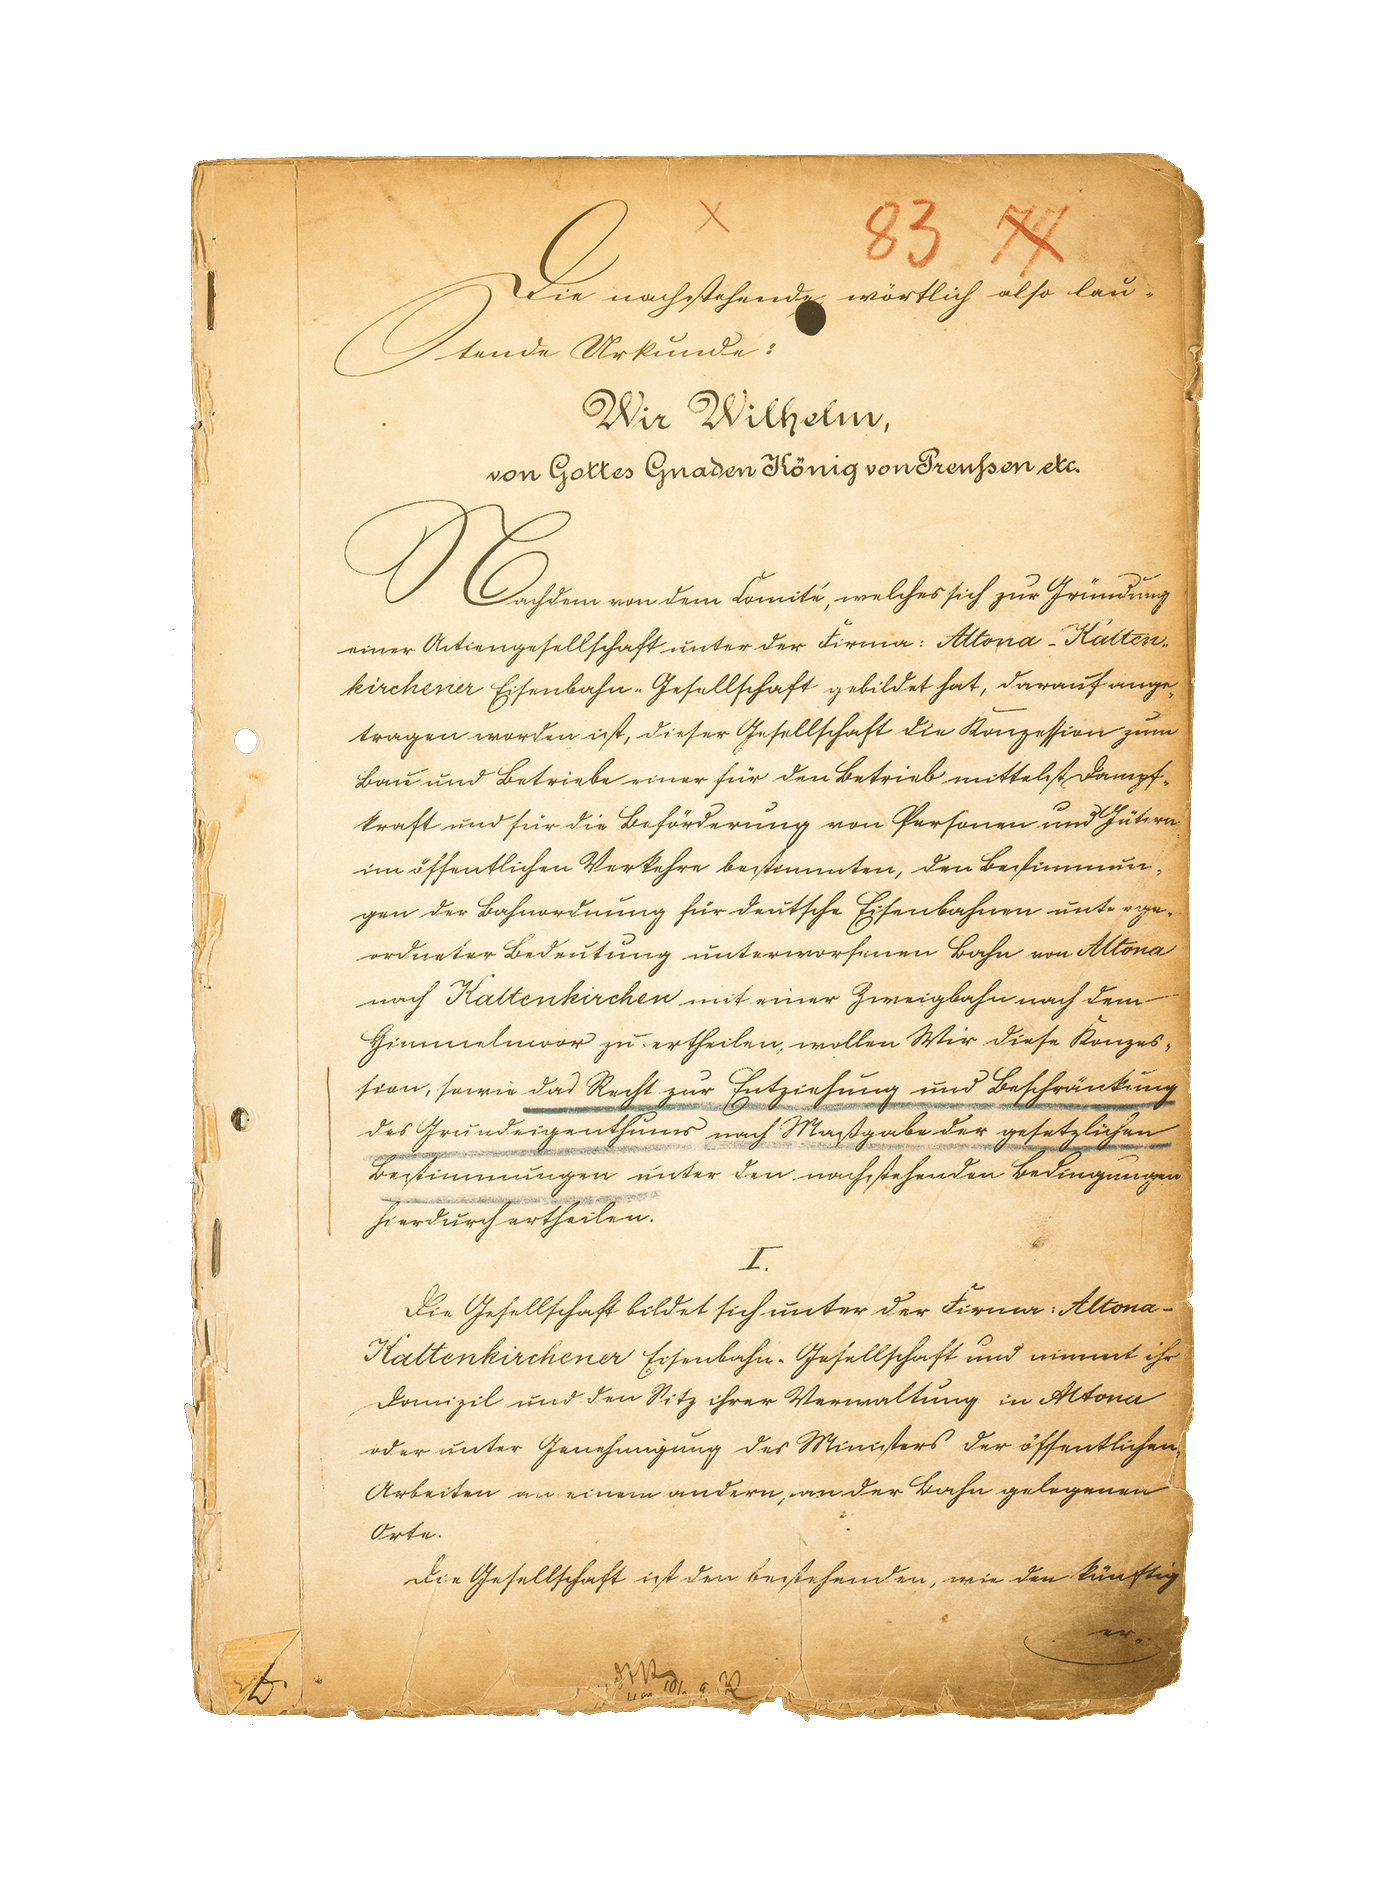 83 77
Die nachstehende, wörtlich also lau-
tende Urkunde:
Wir Wilhelm,
von Gottes Gnaden König von Preußen etc.
Nachdem von dem Comité, welches sich zur Gründung
einer Actiengesellschaft unter der Firma: Altona-Kalten-
kirchener Eisenbahn-Gesellschaft gebildet hat, darauf ange-
tragen worden ist, dieser Gesellschaft die Konzession zum
Bau und Betriebe einer für den Betrieb mittelst Dampf-
kraft und für die Beförderung von Personen und Gütern
im öffentlichen Verkehre bestimmten, den Bestimmun-
gen der Bahnordnung für deutsche Eisenbahnen unterge-
ordneter Bedeutung unterworfenen Bahn von Altona
nach Kaltenkirchen mit einer Zweigbahn nach dem
Himmelmoor zu ertheilen, wollen Wir diese Konzes-
sion, sowie das Recht zur Entziehung und Beschränkung
des Grundeigenthums nach Maßgabe der gesetzlichen
Bestimmungen unter den nachstehenden Bedingungen
hierdurch ertheilen.
I.
Die Gesellschaft bildet sich unter der Firma: Altona-
Kaltenkirchener Eisenbahn-Gesellschaft und nimmt ihr
Domizil und den Sitz ihrer Verwaltung in Altona
oder unter Genehmigung des Ministers der öffentlichen
Arbeiten an einem andern, an der Bahn gelegenen
Orte.
Die Gesellschaft ist den bestehenden, wie den künftig
er-